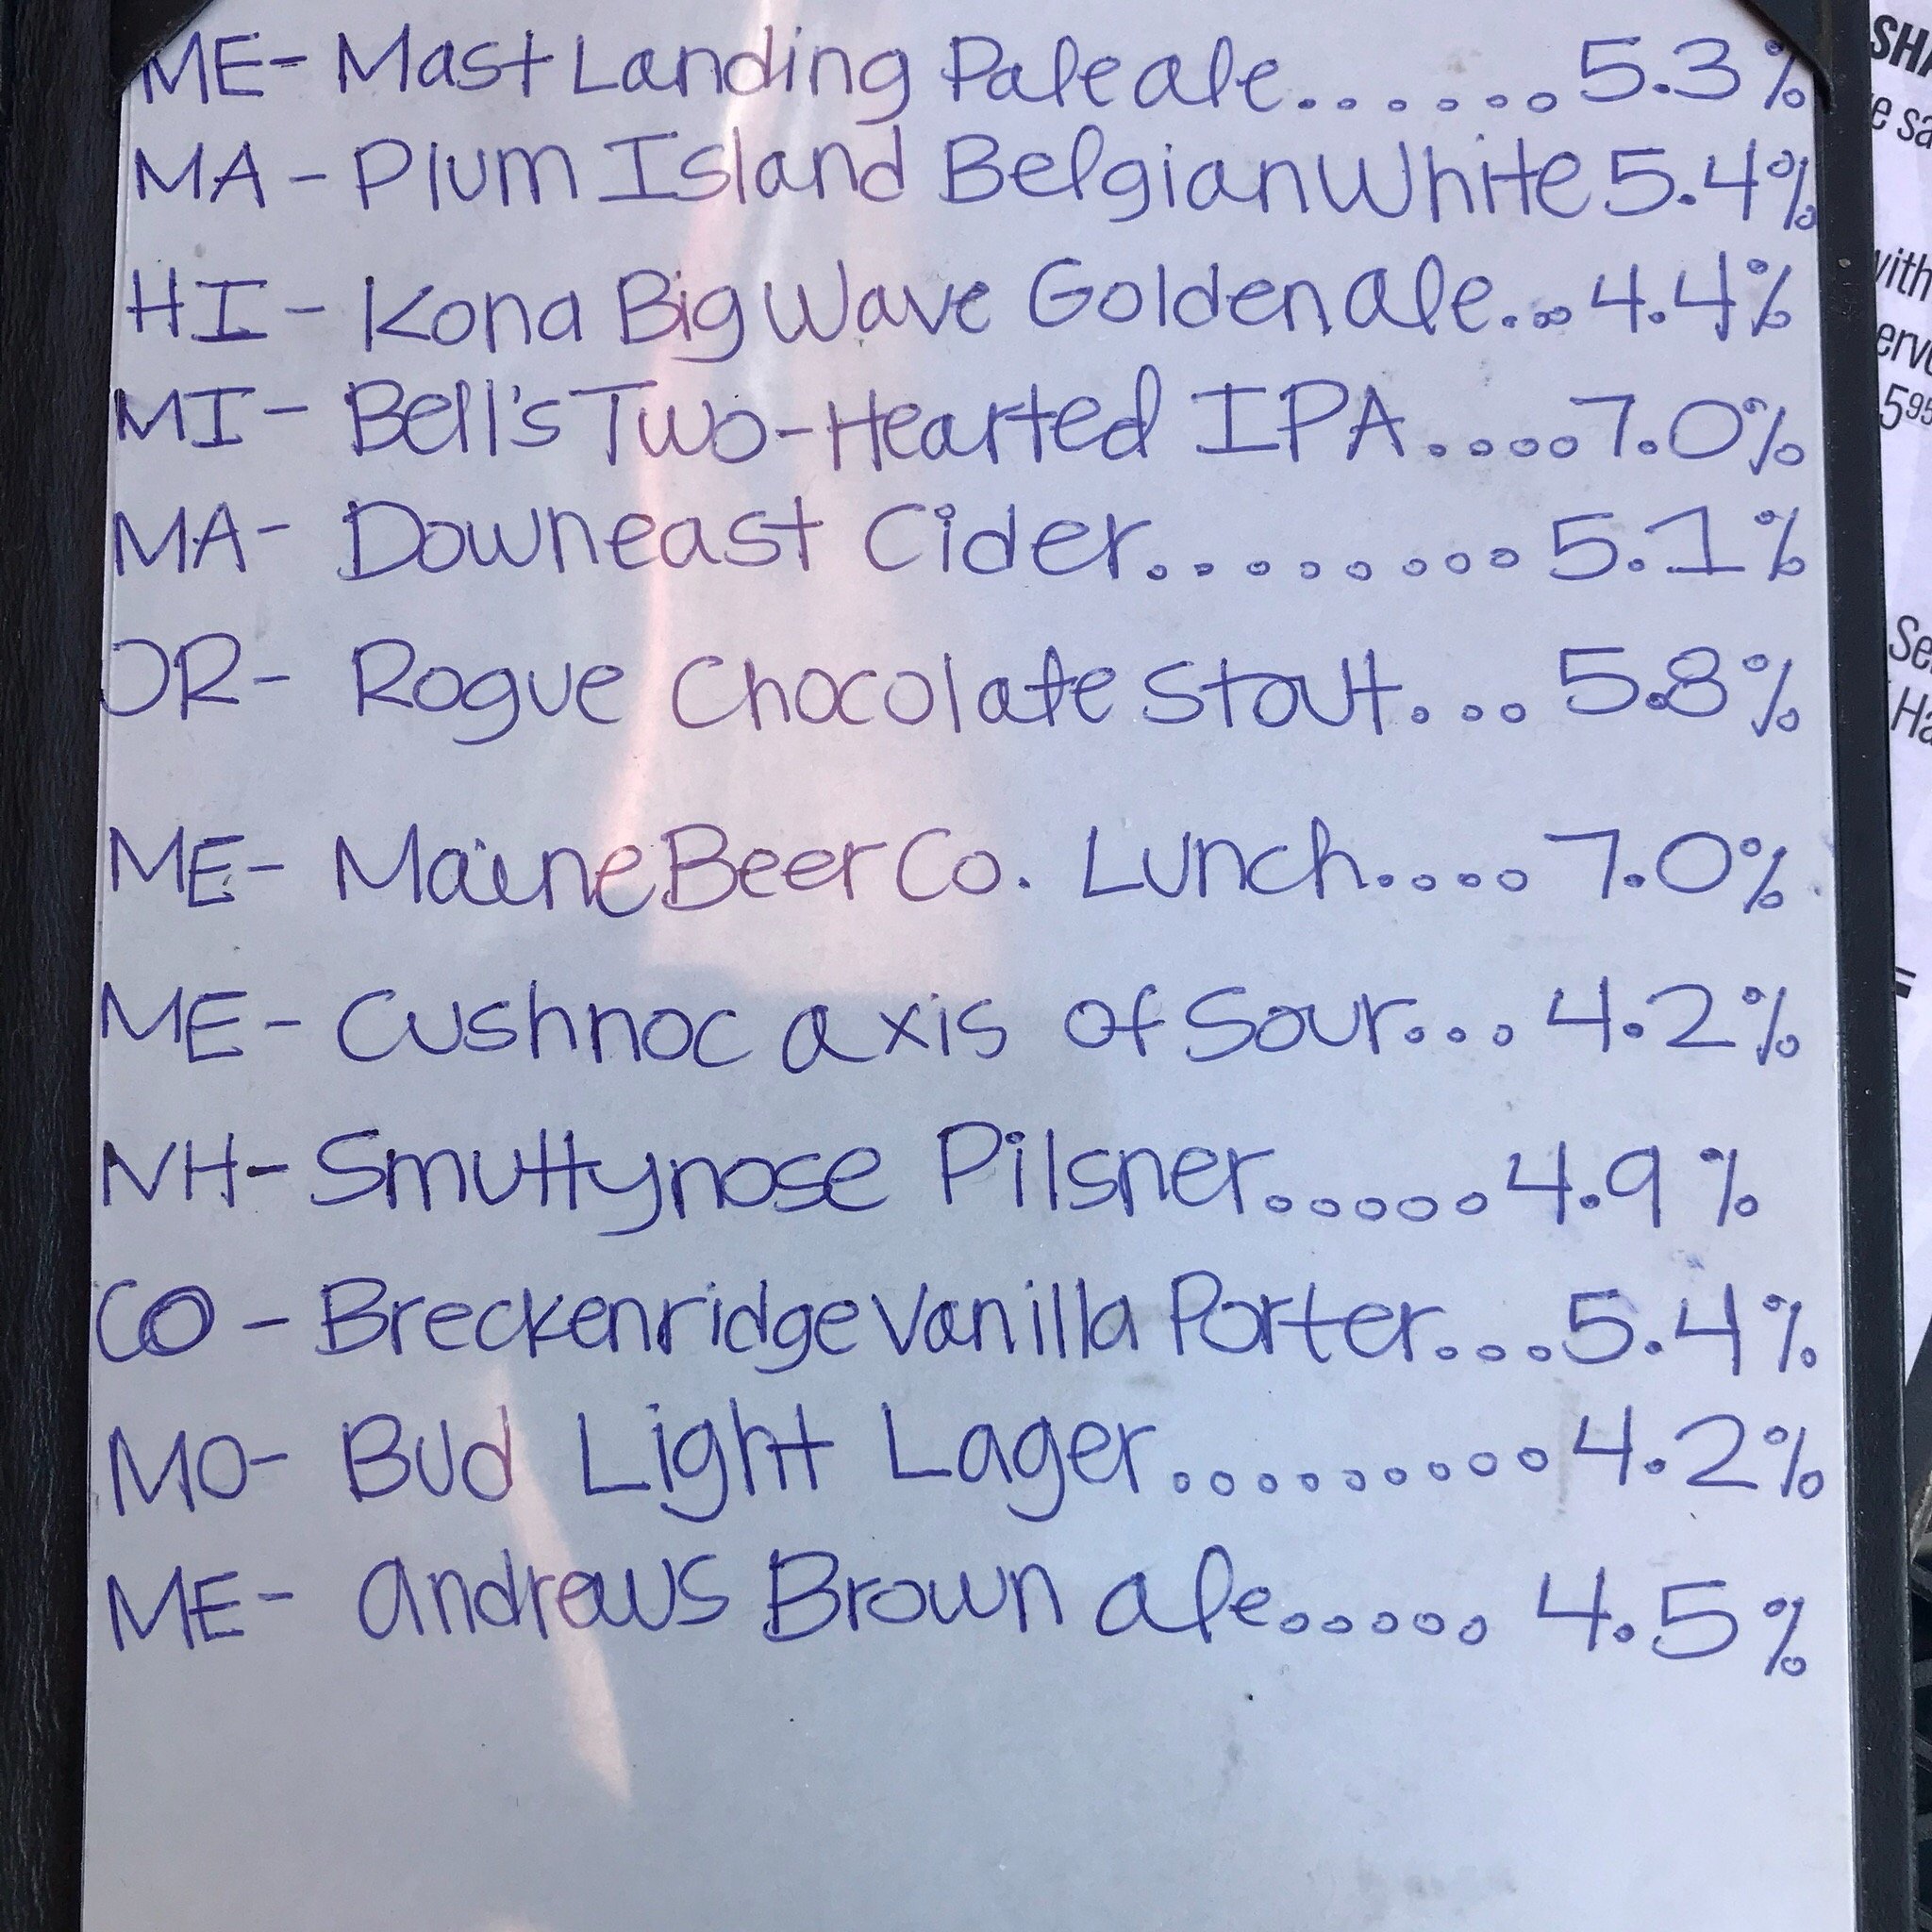 ME- Mast Landing Pale ale.......5.3%
MA - Plum Island Belgian White 5.4%
HI - Kona Big Wave Golden ale...4.4%
MI - Bell's Two-Hearted IPA.....7.0%
MA- Downeast Cider.........5.1%
OR- Rogue Chocolate Stout....5.8%
ME- Maine Beer Co. Lunch....7.0%
ME- Cushnoc axis of Sour...4.2%
NH- Smuttynose Pilsner......4.9%
CO - Breckenridge Vanilla Porter....5.4%
MO- Bud Light Lager.........4.2%
ME- andrews Brown ale.....4.5%
5.95